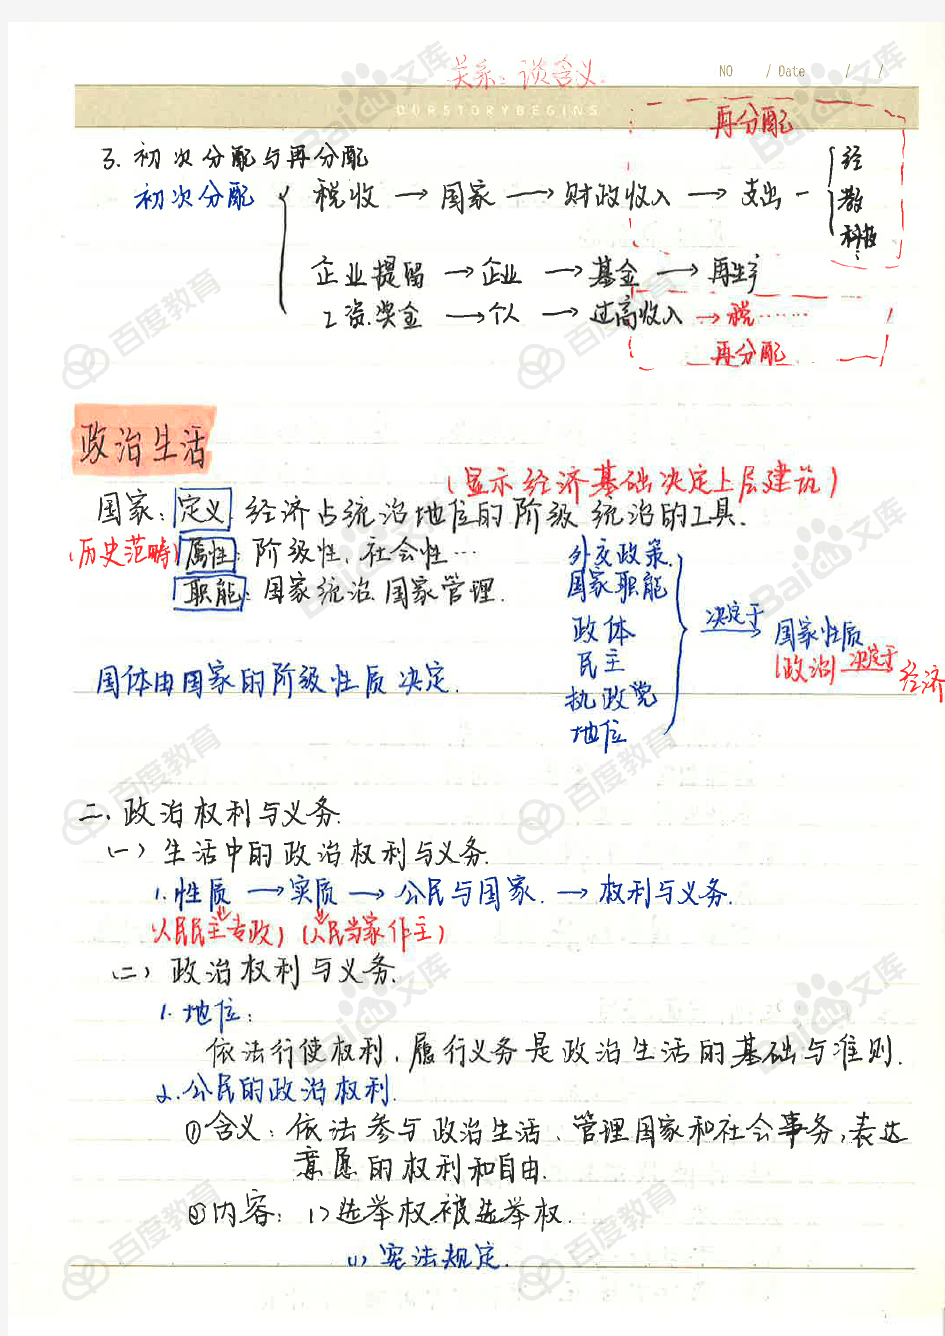 关系：谈含义.
NO / Date / /
OURSTORYBEGINS
再分配
3. 初次分配与再分配
初次分配 { 税收 → 国家 → 财政收入 → 支出 - { 经 教 科技 …
企业提留 → 企业 → 基金 → 再生产
工资.奖金 → 个人 → 过高收入 → 税……
再分配
政治生活
(显示经济基础决定上层建筑)
国家: 定义: 经济占统治地位的阶级统治的工具.
(历史范畴) 属性: 阶级性、社会性…
职能: 国家统治 国家管理.
外交政策.
国家职能
政体
民主
执政党
地位
决定于→ 国家性质
(政治) 决定于→ 经济
国体由国家的阶级性质决定.
二、政治权利与义务.
(一) 生活中的政治权利与义务.
1.性质 → 实质 → 公民与国家. → 权利与义务.
(人民民主专政) (人民当家作主)
(二) 政治权利与义务.
1. 地位:
依法行使权利、履行义务是政治生活的基础与准则.
2.公民的政治权利.
①含义: 依法参与政治生活、管理国家和社会事务,表达
意愿的权利和自由.
②内容: 1>选举权.被选举权.
(1) 宪法规定.
Baidu文库
百度教育